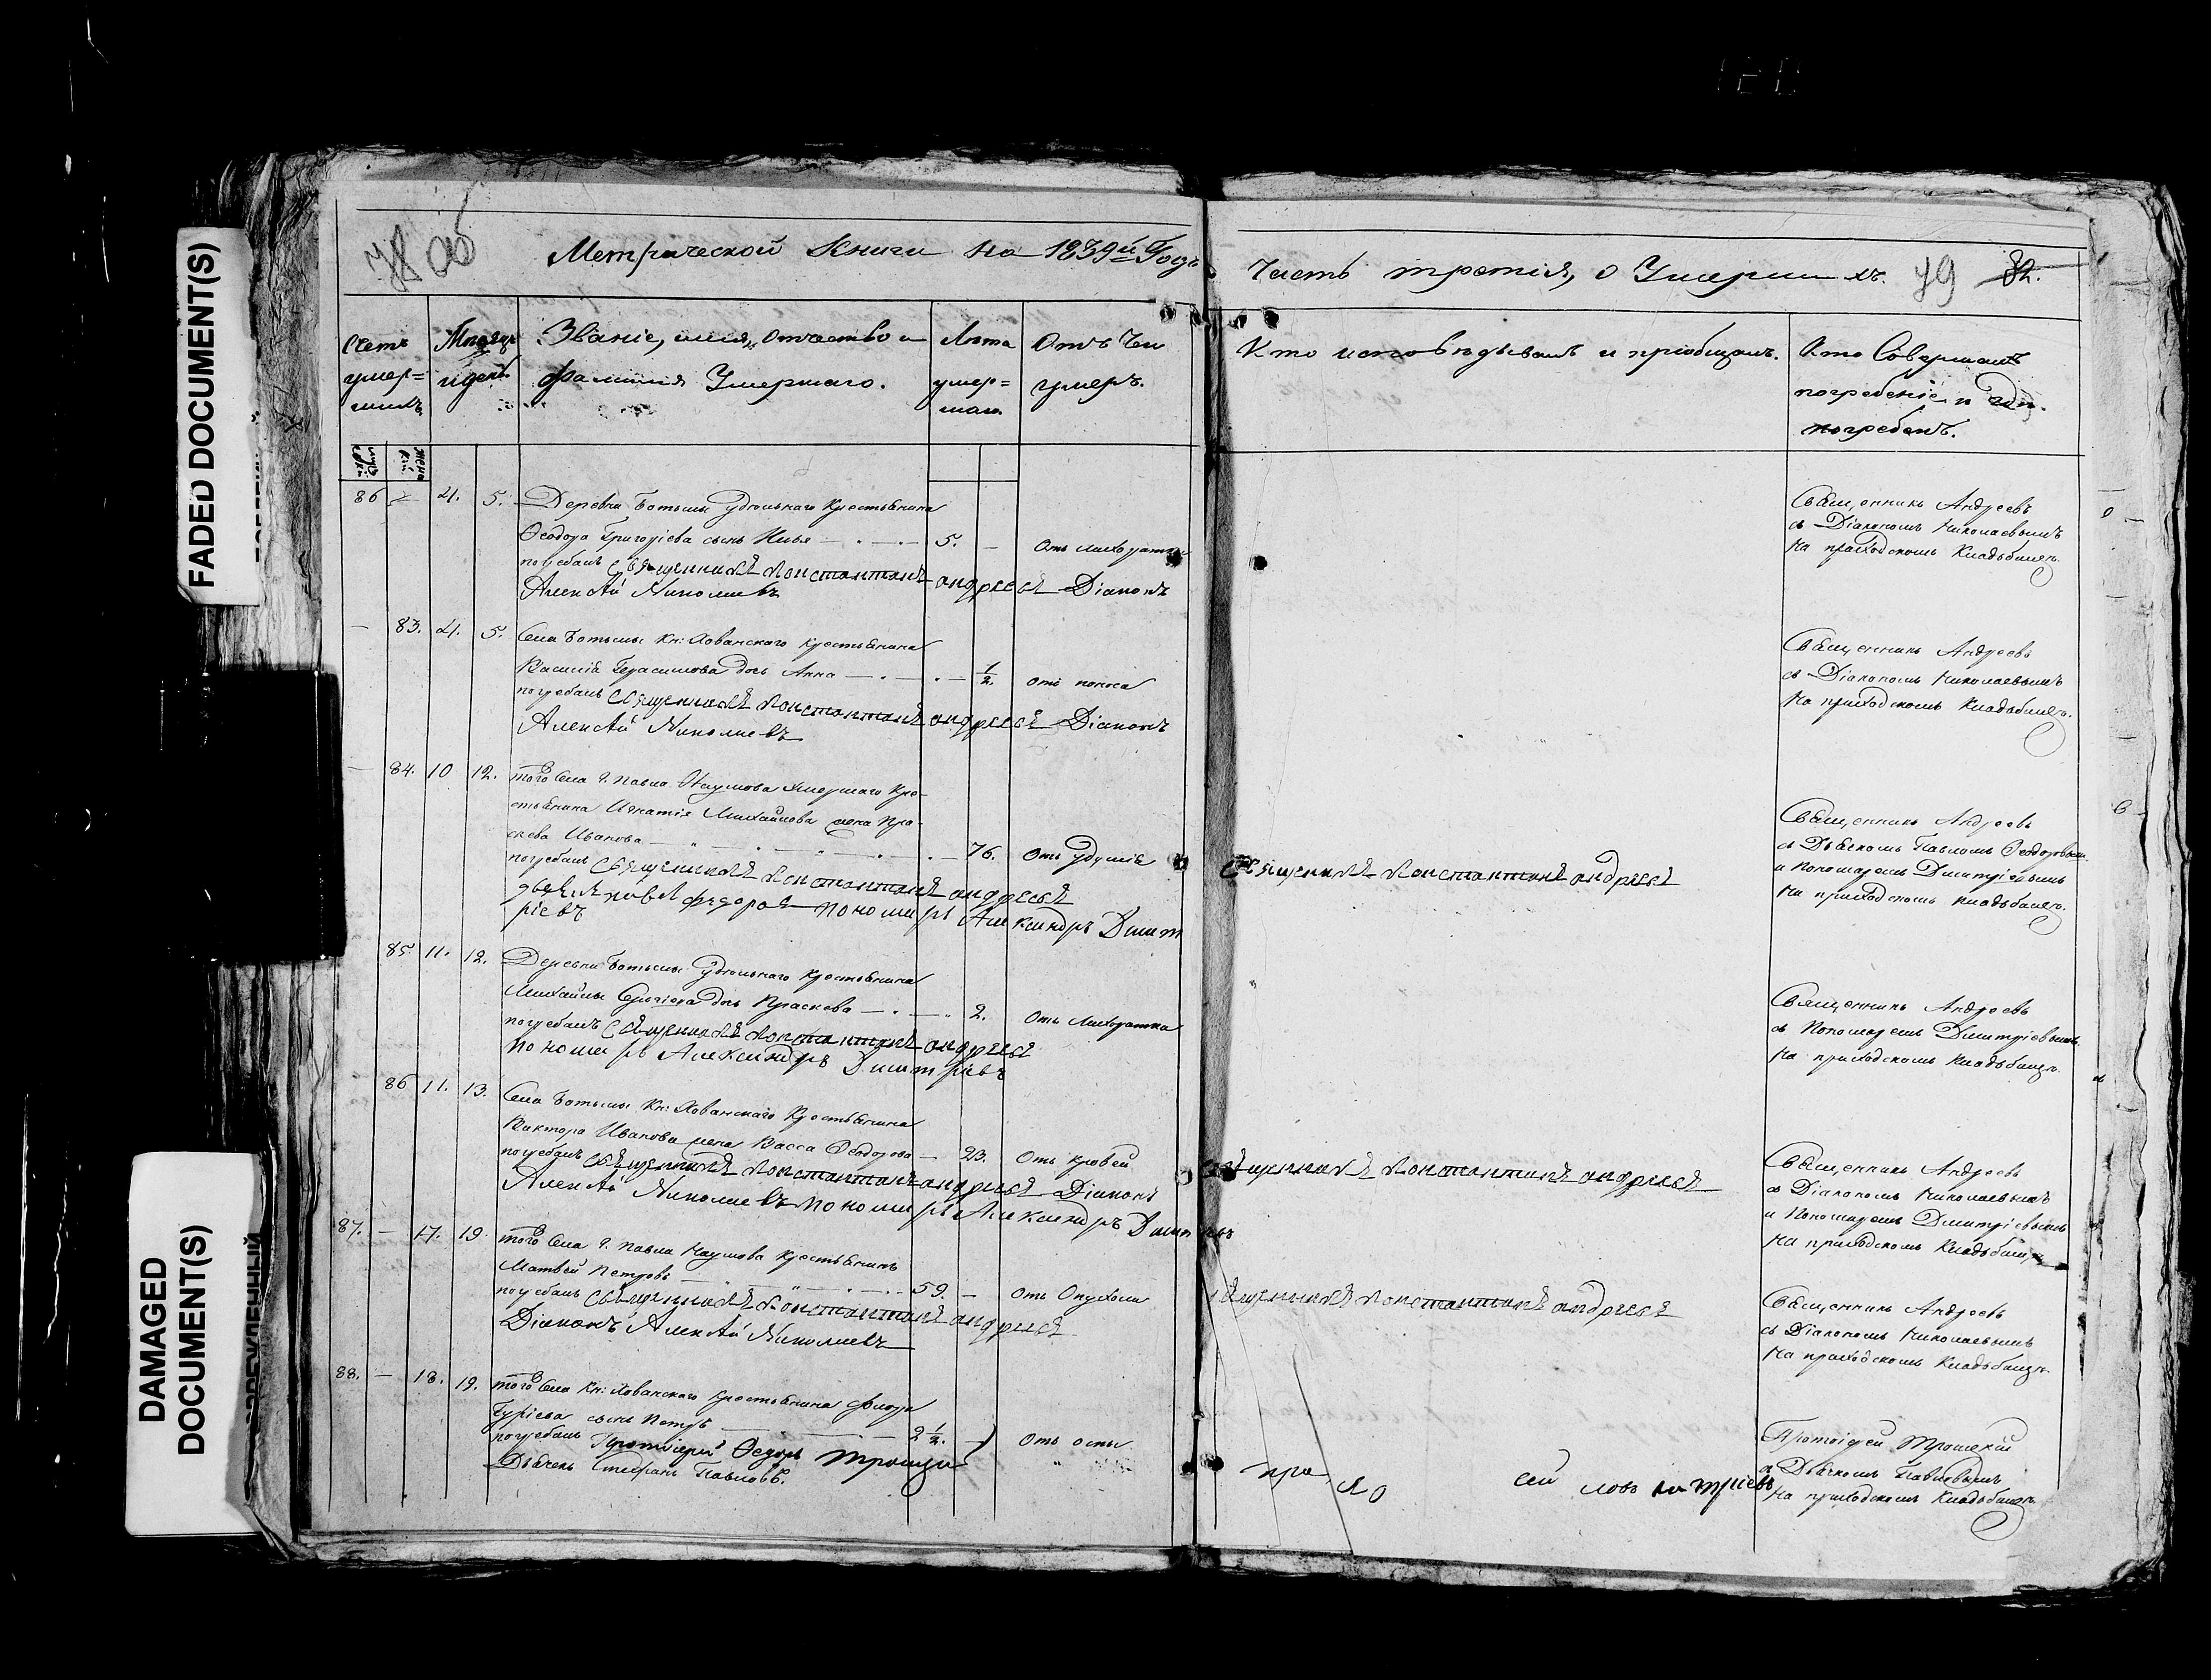 FADED DOCUMENT(S)
DAMAGED
DOCUMENT(S)
78 об
Метрической Книги на 1839й Годъ
Счетъ умершихъ
Мѣсяцъ и день
Званіе, имя, отчество и
фамилія Умершаго.
Лѣта умершаго
Отъ чего умеръ.
86 4. 5. Деревни Ботьмы Удѣльнаго Крестьянина
Ѳеодора Григорісва сынъ Илья 5. Отъ лихорадки
погребалъ священникъ константинъ андреевъ Діаконъ
Алексѣй Николаевъ
83. 4. 5. Села Ботьмы Кн: Хованскаго Крестьянина
Василія Герасимова дочь Анна 1/2. отъ поноса
погребалъ священникъ константинъ андреевъ Діаконъ
Алексѣй Николаевъ
84. 10 12. того Села Г. Павла Наумова Умершаго Кре-
стьянина Игнатія Михайлова жена Пра-
скева Иванова 76. Отъ удушія
погребалъ священникъ константинъ андреевъ
дьячекъ павелъ федоровъ пономарь Александръ Димит
ріевъ
85 11. 12. Деревни Ботьмы Удѣльнаго Крестьянина
Михайлы Сергіева дочь Праскева 2. Отъ лихорадки
погребалъ священникъ константинъ андреевъ
пономарь Александръ Димитріевъ
86 11. 13. Села Ботьмы Кн: Хованскаго Крестьянина
Виктора Иванова жена Васса Ѳеодорова 23. Отъ кровей
погребалъ священникъ константинъ андреевъ Діаконъ
Алексѣй Николаевъ пономарь Александръ Димитріевъ
87. 17. 19. того Села Г. Павла Наумова Крестьянинъ
Матвей Петровъ 59. Отъ Опухоли
погребалъ священникъ константинъ андреевъ
Діаконъ Алексѣй Николаевъ
88. 18. 19. того Села Кн: Хованскаго Крестьянина Флора
Гурієва сынъ Петръ 2 1/2. Отъ оспы
погребалъ Протоіерей Ѳедоръ Троицкі
Дьячекъ Стефанъ Павловъ.
Часть третія, о Умершихъ. 79 82.
Кто исповѣдывалъ и пріобщалъ.
Кто Совершалъ
погребеніе и гдѣ
погребенъ.
Священникъ Андреевъ
съ Діакономъ Николаевымъ
на приходскомъ Кладбищѣ.
Священникъ Андреевъ
съ Діакономъ Николаевымъ
на приходскомъ Кладбищѣ.
Священникъ константинъ андреевъ
Священникъ Андреевъ
съ Дьячкомъ Павломъ Ѳеодоровым.
и Пономаремъ Димитріевымъ
на приходскомъ кладбищѣ.
Священникъ Андреевъ
съ Пономаремъ Димитріевымъ
на приходскомъ Кладбищѣ.
священникъ константинъ андреевъ
Священникъ Андреевъ
съ Діакономъ Николаевымъ
и Пономаремъ Димитріевымъ
на приходскомъ Кладбищѣ
священникъ константинъ андреевъ
Священникъ Андреевъ
съ Діакономъ Николаевымъ
на приходскомъ Кладбищѣ.
Протоіерей Троицкій
съ Дьячкомъ Павловымъ
на приходскомъ Кладбищѣ.